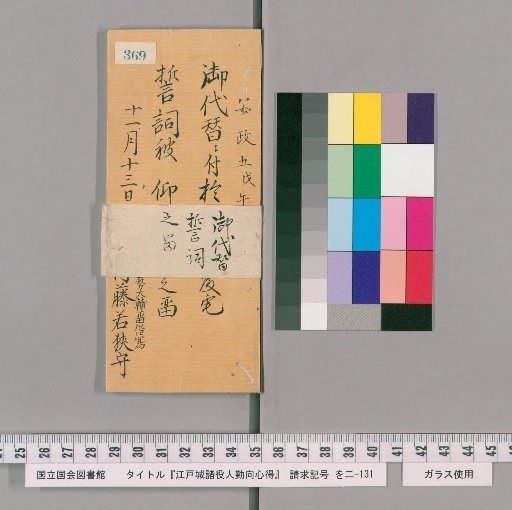 369
安政五戊午
御代替ニ付於
誓詞被仰
十一月十三日
藤若狭守
御代替
誓詞
之留
国立国会図書館 タイトル『江戸城諸役人勤向心得』 請求記号 を二-131
ガラス使用
25 26 27 28 29 30 31 32 33 34 35 36 37 38 39 40 41 42 43 44 45